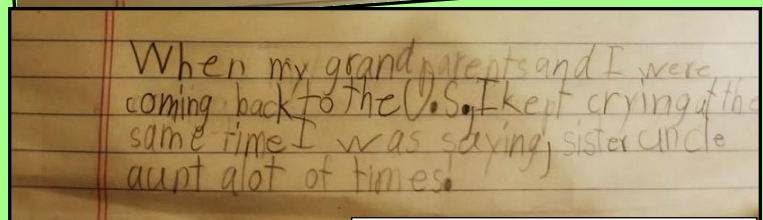 When my grandparents and I were
coming back to the U.S. I kept crying at the
same time I was saying, sister uncle
aunt alot of times.